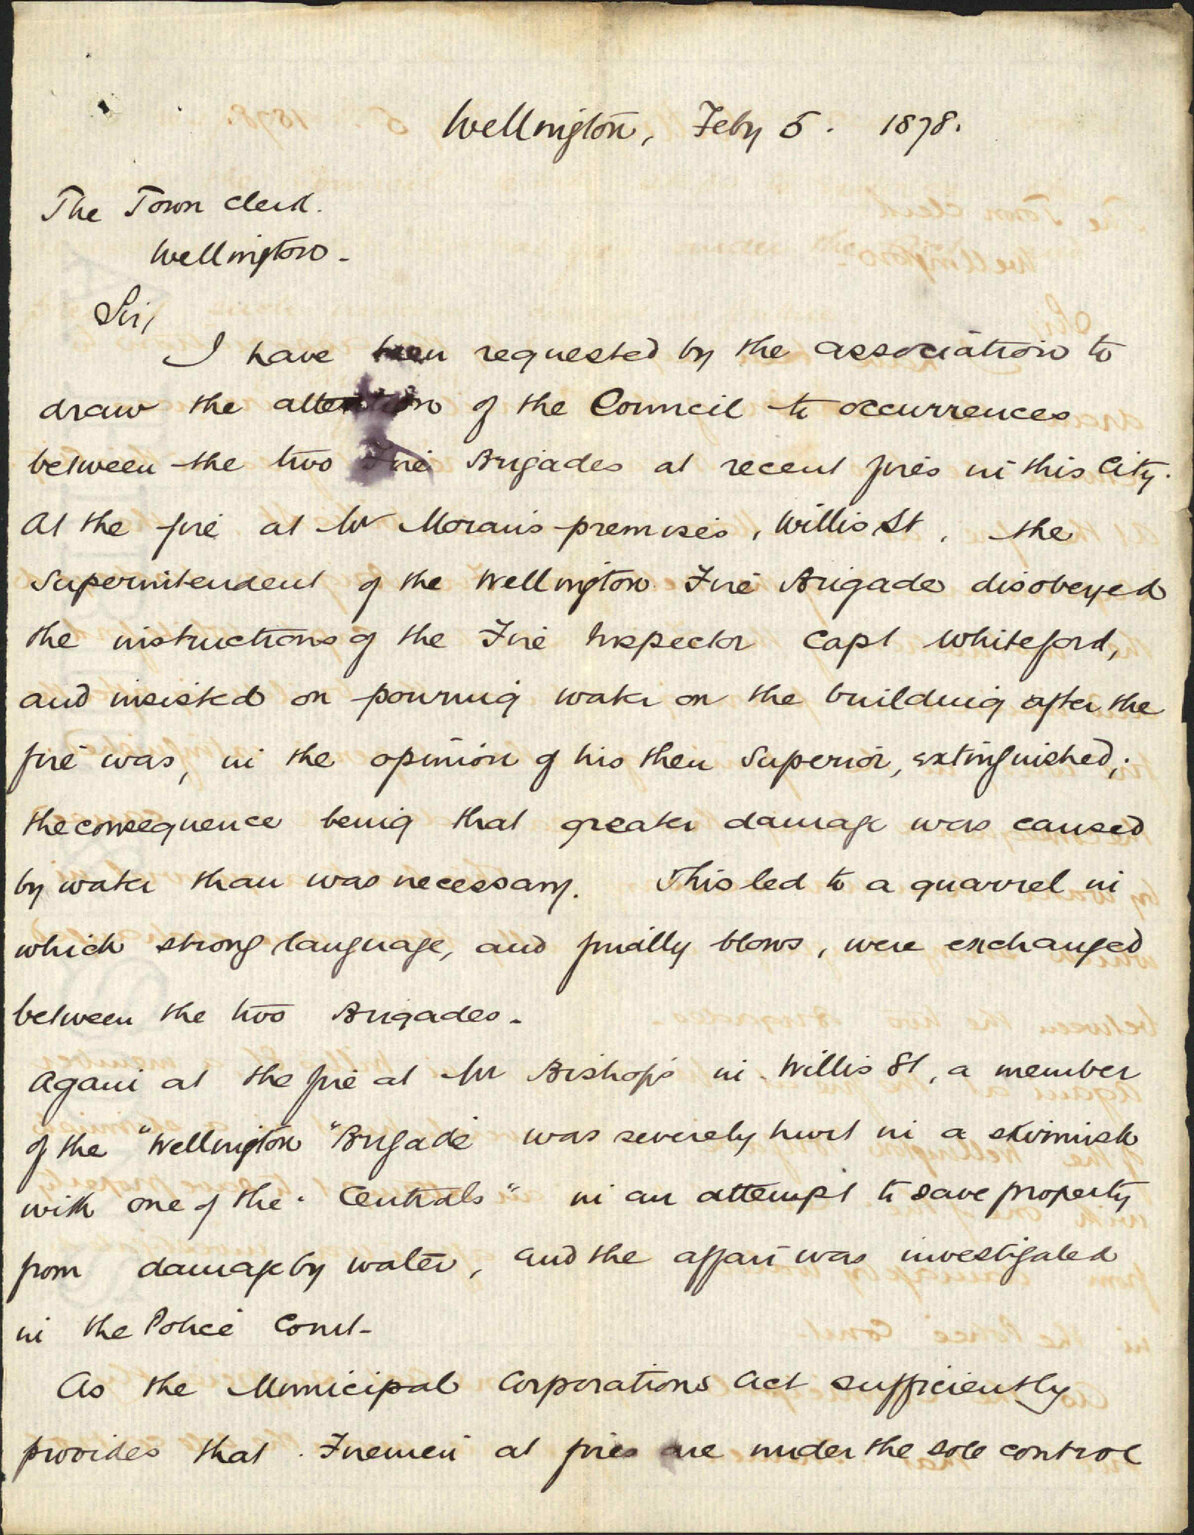 Wellington, Feby 5. 1878.
The Town Clerk.
Wellington -
Sir,
I have been requested by the association to
draw the attention of the Council to occurrences
between the two Fire Brigades at recent fires in this City.
At the fire at Mr Moran's premises, Willis St, the
Superintendent of the Wellington Fire Brigade disobeyed
the instructions of the Fire Inspector Capt Whiteford,
and insisted on pouring water on the building after the
fire was, in the opinion of his then Superior, extinguished;
the consequence being that greater damage was caused
by water than was necessary. This led to a quarrel in
which strong language, and finally blows, were exchanged
between the two Brigades -
Again at the fire at Mr Bishop's in Willis St, a member
of the "Wellington" Brigade was severely hurt in a skirmish
with one of the "Centrals" in an attempt to save property
from damage by water, and the affair was investigated
in the Police Court -
As the Municipal Corporations Act sufficiently
provides that Firemen at fires are under the sole control